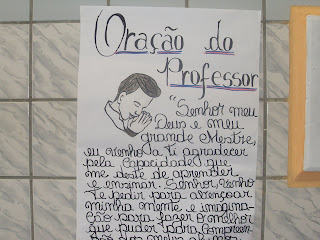 Oração do
Professor
"Senhor meu
Deus e meu
grande Mestre,
eu venho a ti agradecer
pela capacidade que
me deste de aprender
e ensinar. Senhor, venho
Te pedir para abençoar
minha mente e imagina-
ção para fazer o melhor
que puder para compreen-